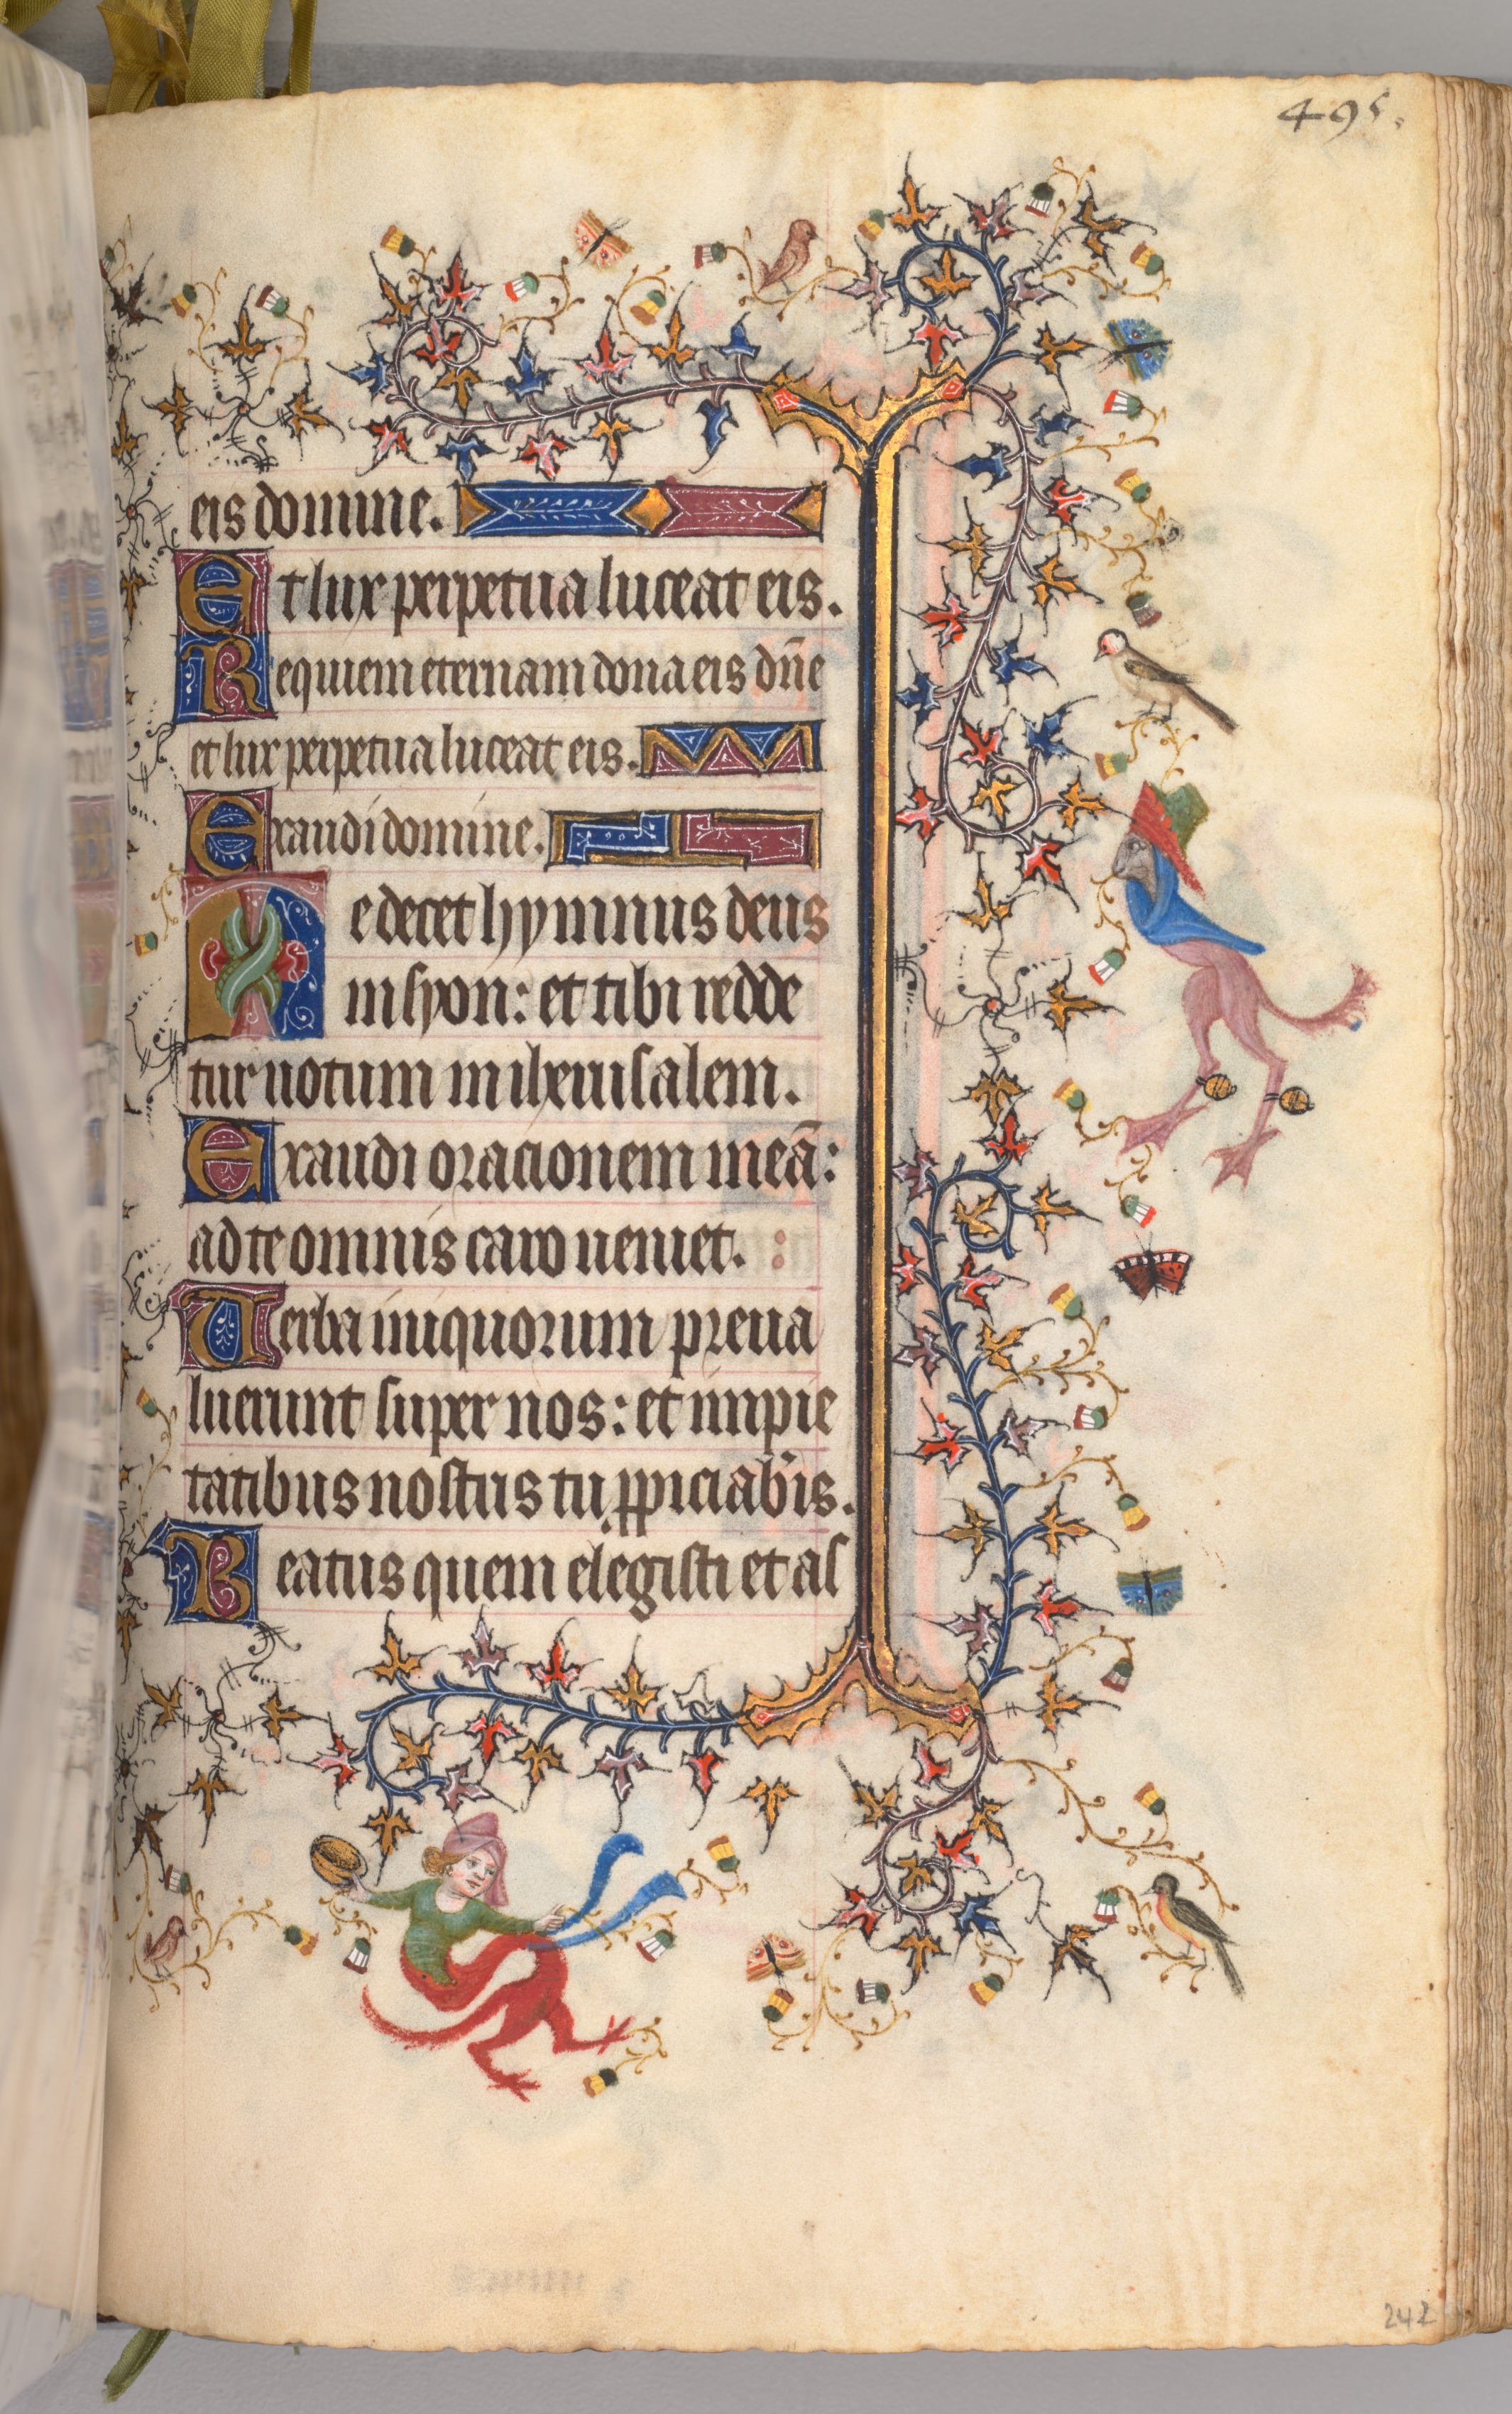 495.
eis domine.
Et lux perpetua luceat eis.
Requiem eternam dona eis dñe
et lux perpetua luceat eis.
Exaudi domine.
Te decet hymnus deus
in syon: et tibi redde
tur uotum in iherusalem.
Exaudi oracionem meā:
ad te omnis caro ueniet.
Uerba iniquorum preua
luerunt super nos: et impie
tatibus nostris tu ꝓpiciab'is.
Beatus quem elegisti et as
242